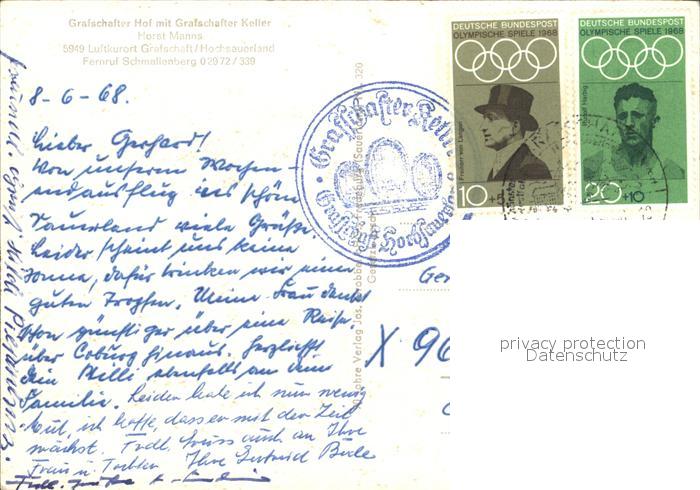 Grafschafter Hof mit Grafschafter Keller
Horst Manns
5949 Luftkurort Grafschaft/Hochsauerland
Fernruf Schmallenberg 02972/339
8-6-68.
Lieber Gerhard!
Von unserem Wochen-
endausflug ins schöne
Sauerland viele Grüße.
Leider scheint uns keine
Sonne, dafür trinken wir einen
guten Tropfen. Meine Frau denkt
schon günstiger über eine Reise
über Coburg hinaus. Herzlichst
Dein Willi ebenfalls an Deine
Familie. Leider habe ich nur wenig
Mut, ich hoffe, dass er mit der Zeit
wächst. Frdl. Gruss auch an Ihre
Frau u. Tochter Ihre Gertrud
Frdl. Grüße
Grafschafter Keller
Grafschaft Hochsauerland
320
DEUTSCHE BUNDESPOST
OLYMPISCHE SPIELE 1968
Freiherr von Langen
10+5
DEUTSCHE BUNDESPOST
OLYMPISCHE SPIELE 1968
Rudolf Harbig
20+10
Ger
X 96
privacy protection
Datenschutz